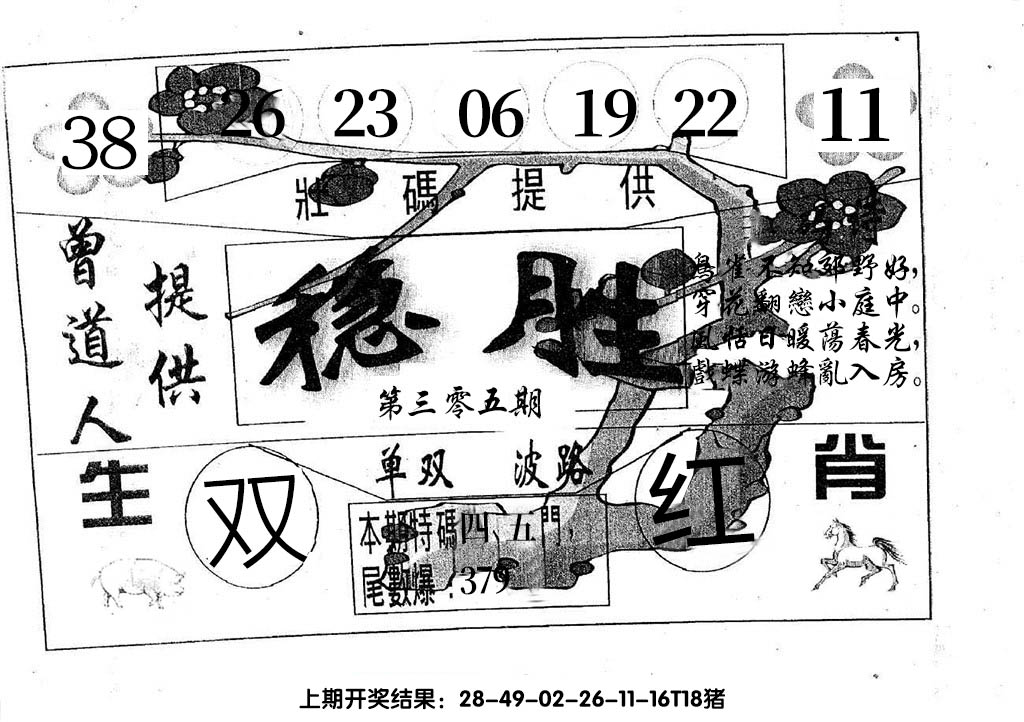 38 26 23 06 19 22 11
壯碼提供
曾道人
提供
稳胜
第三零五期
鳥雀不知郊野好，
穿花翻戀小庭中。
風恬日暖蕩春光，
戲蝶游蜂亂入房。
单双 波路
生肖
双
红
本期特碼四、五門，
尾數爆：379
上期开奖结果：28-49-02-26-11-16T18猪